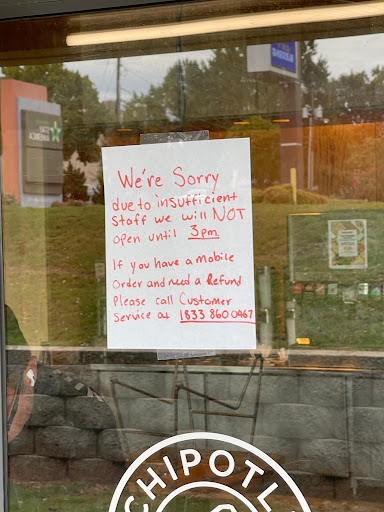 We're Sorry
due to insufficient
Staff we will NOT
open until 3pm.
If you have a mobile
Order and need a Refund
Please call Customer
Service at 1833 860 0467
CHIPOTL